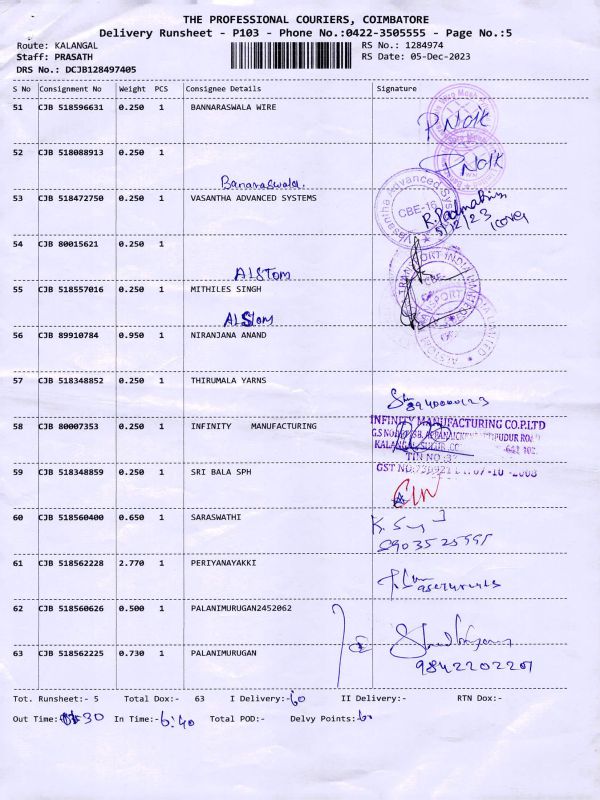 THE PROFESSIONAL COURIERS, COIMBATORE
Delivery Runsheet - P103 - Phone No.:0422-3505555 - Page No.:5
Route: KALANGAL
RS No.: 1284974
Staff: PRASATH
RS Date: 05-Dec-2023
DRS No.: DCJB128497405
S No Consignment No Weight PCS Consignee Details Signature
51 CJB 518596631 0.250 1 BANNARASWALA WIRE
P. Naik
52 CJB 518088913 0.250 1
P. Naik
Banaraswala.
53 CJB 518472750 0.250 1 VASANTHA ADVANCED SYSTEMS
Vasantha Advanced Sys
CBE-16
5/12/23
1 cover
54 CJB 80015621 0.250 1
ALSTOM
55 CJB 518557016 0.250 1 MITHILES SINGH
TRANSPORT INDIA LIMITED
ALSTOM
56 CJB 89910784 0.950 1 NIRANJANA ANAND
57 CJB 518348852 0.250 1 THIRUMALA YARNS
58 CJB 80007353 0.250 1 INFINITY MANUFACTURING
INFINITY MANUFACTURING CO.P.LTD
KALANGAL, SULUR,
TIN NO
GST NO
59 CJB 518348859 0.250 1 SRI BALA SPH
60 CJB 518560400 0.650 1 SARASWATHI
61 CJB 518562228 2.770 1 PERIYANAYAKKI
62 CJB 518560626 0.500 1 PALANIMURUGAN2452062
63 CJB 518562225 0.730 1 PALANIMURUGAN
9842202201
Tot. Runsheet:- 5 Total Dox:- 63 I Delivery:-60 II Delivery:- RTN Dox:-
Out Time: 30 In Time:-6:40 Total POD:- Delvy Points:60